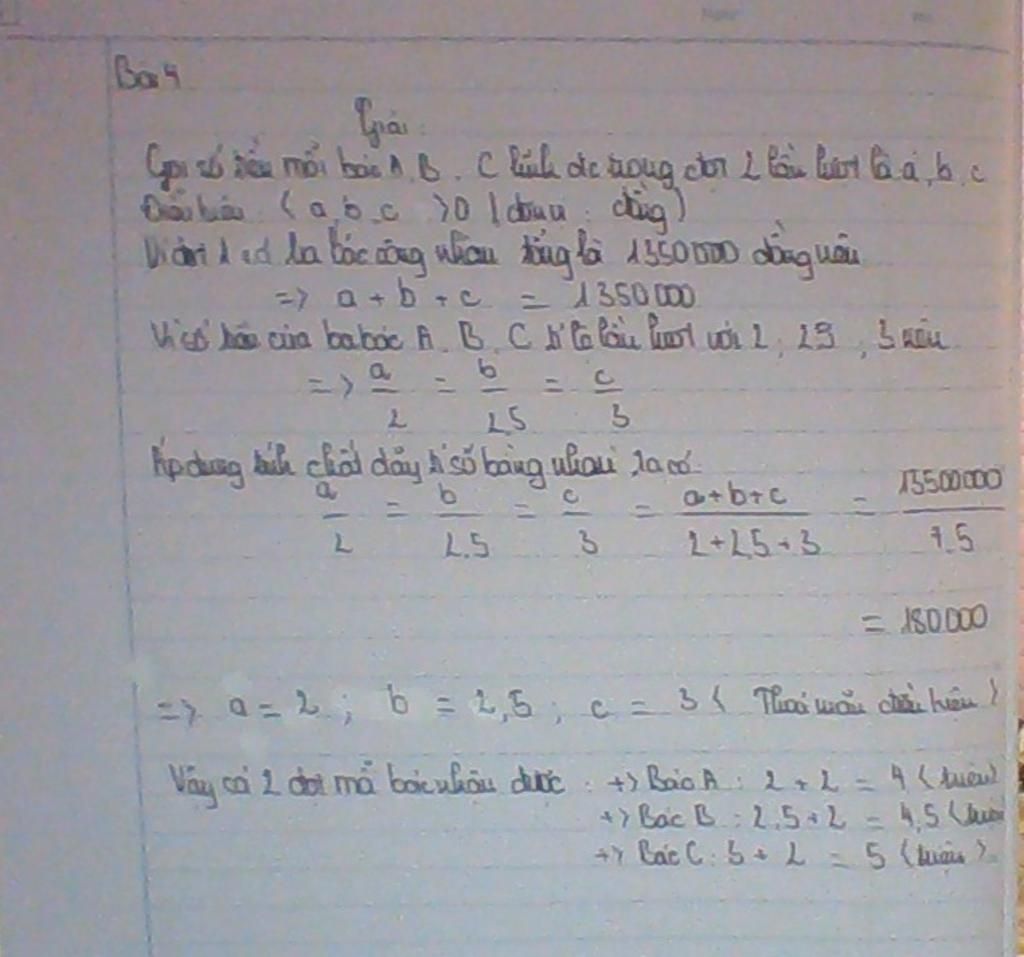 Bài 4
Giải:
Gọi số tiền mỗi bác A, B, C lĩnh đc trong đợt 2 lần lượt là a, b, c
Điều kiện: (a, b, c >0 | đơn vị: đồng)
Vì đợt 1 cả ba bác công nhân tổng là 1350000 đồng nên
=> a + b + c = 1350000
Vì số tiền của ba bác A, B, C tỉ lệ lần lượt với 2, 2,5, 3 nên
=> a/2 = b/2,5 = c/3
Áp dụng tính chất dãy tỉ số bằng nhau, ta có:
a/2 = b/2,5 = c/3 = a+b+c/2+2,5+3 = 13500000/7,5
= 180.000
=> a = 2; b = 2,5; c = 3 (Thoả mãn điều kiện)
Vậy cả 2 đợt mà bác nhận được: +> Bác A: 2 + 2 = 4 (triệu)
+> Bác B: 2,5+2 = 4,5 (triệu
+> Bác C: 3 + 2 = 5 (triệu).